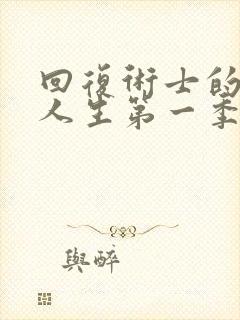 回復術士的
人生第一季
與醉